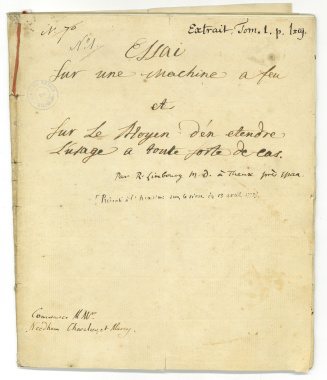 N. 76
Extrait. Tom. 1. p.
N° 1
Essai
Sur une Machine a feu
et
Sur Le Moyen d'en etendre
L'usage a toute sorte de cas.
Par R. Limbourg M. D. à Theux près Spaa
Commissaires MMrs
Needham Chevalier et